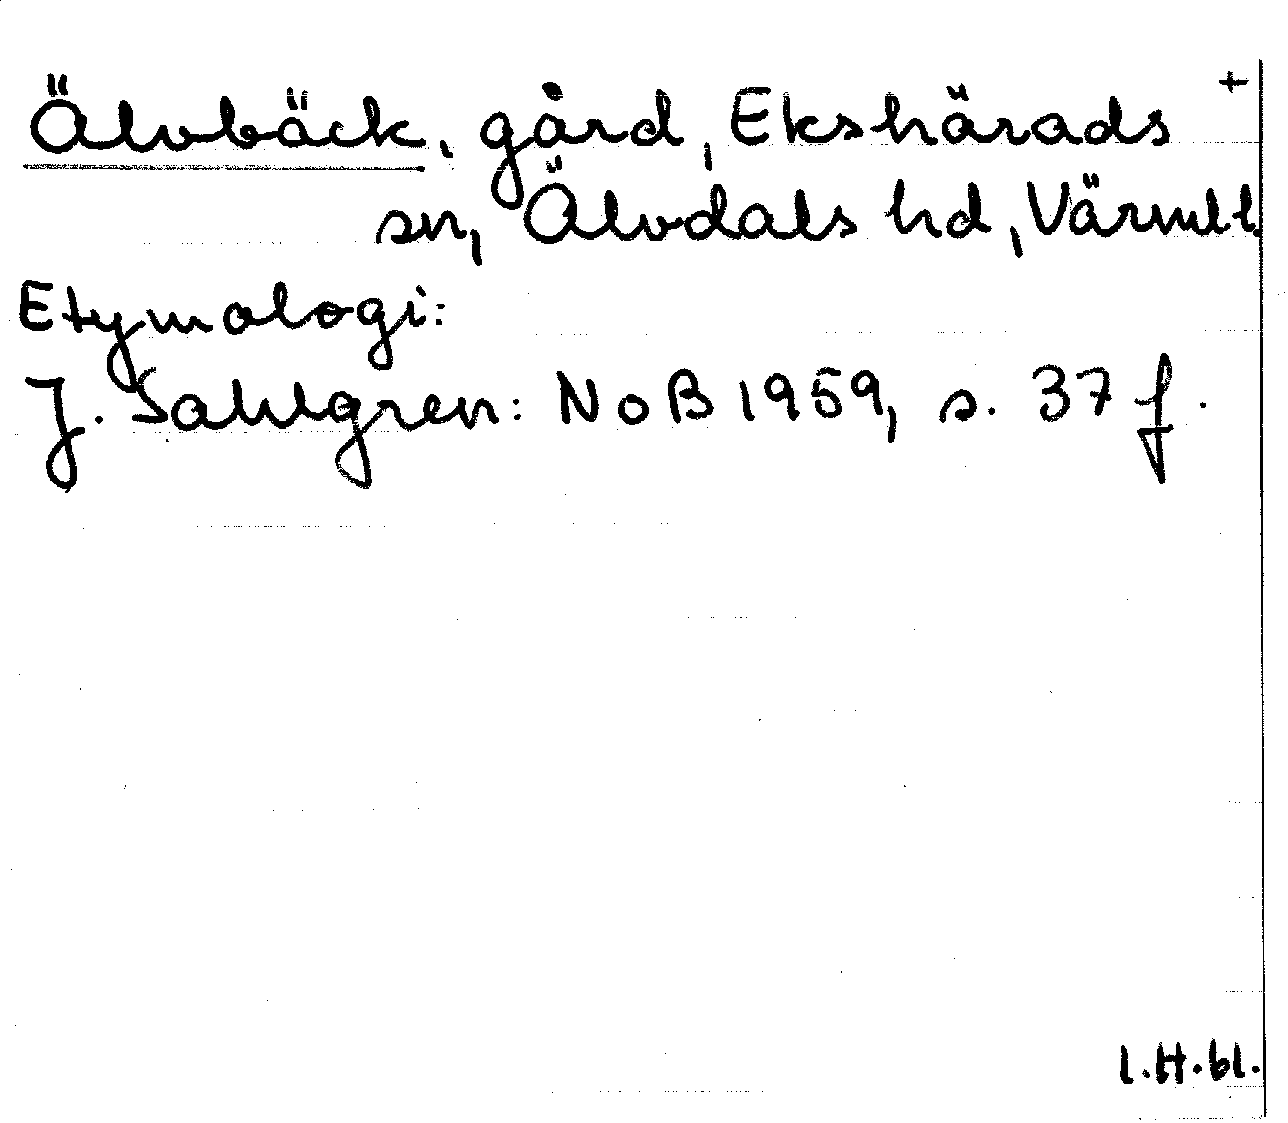 +
Älvbäck, gård, Ekshärads
sn, Älvdals hd, Värml.
Etymologi:
J. Sahlgren: NoB 1959, s. 37 f.
I.H.61.